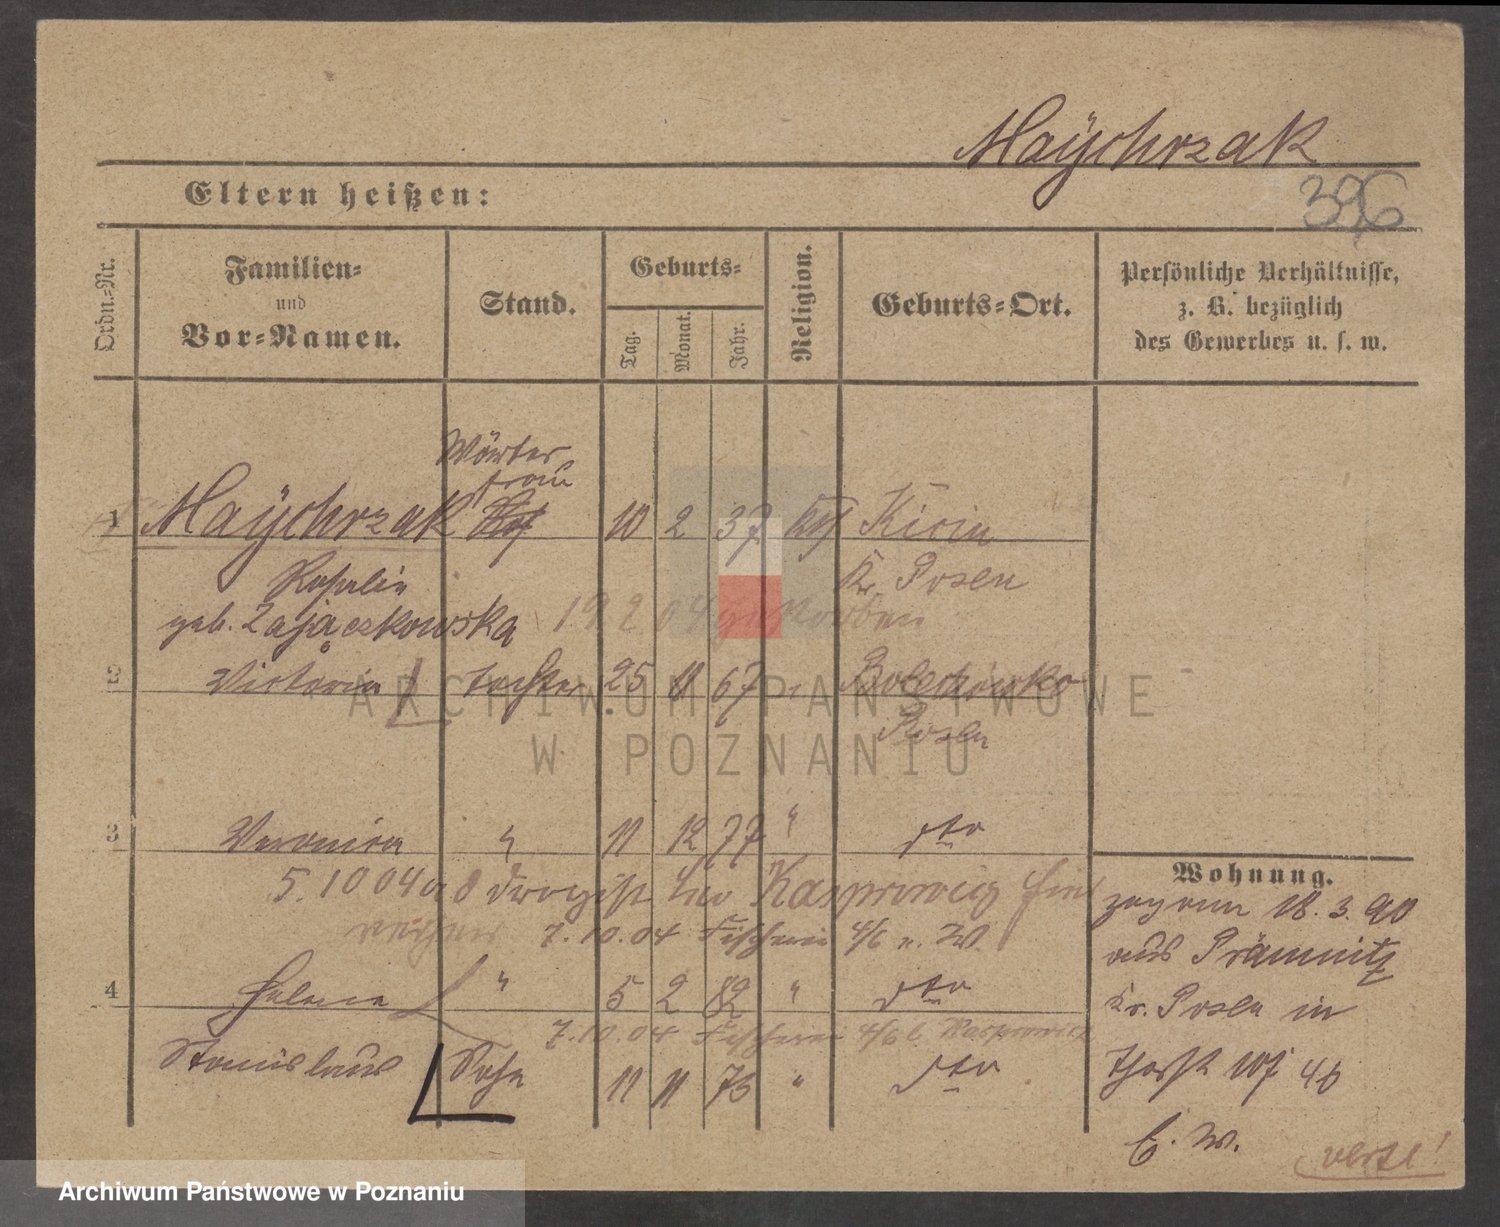 Maÿchrzak
396
Eltern heißen:
Ordn.-Nr.
Familien-
und
Vor-Namen.
Stand.
Geburts-
Tag.
Monat.
Jahr.
Religion.
Geburts-Ort.
Persönliche Verhältnisse,
z. B. bezüglich
des Gewerbes u. s. w.
Wärter
frau
1 Maÿchrzak 10 2 37 kth Kicin
Rosalie Kr. Posen
geb. Zajączkowska 19 2 04 gestorben
2 Victoria Tochter 25 11 67 " Bolechowko
Posen
3 Veronica " 11 12 77 " dto
5.10 04 a d Drogist Leo Kasprowicz
7.10.04 Fischerei 4/6 n. W.
4 Helene " 5 2 82 " dto
7.10.04 Fischerei 4/6 b Kasprowicz
Stanislaus Sohn 11 11 75 " dto
Wohnung.
zogen 18.3.90
aus Prämnitz
Kr. Posen in
46
E. W.
verte!
ARCHIWUM PAŃSTWOWE
W POZNANIU
Archiwum Państwowe w Poznaniu